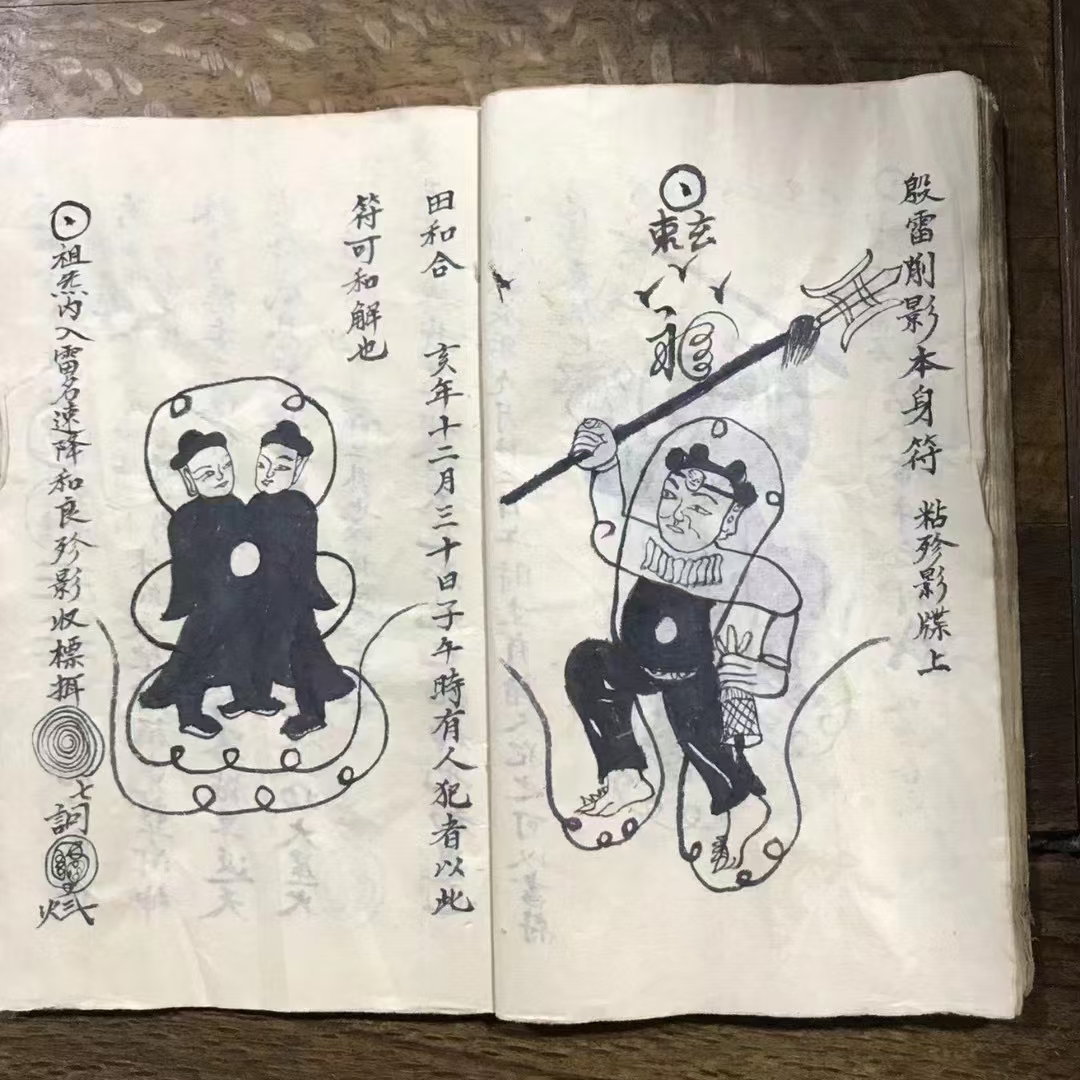 殷雷削影本身符 粘殄影牒上
玄
東
田和合 亥年十二月三十日子午時有人犯者以此
符可和解也
祖炁内入雷名速降和良殄影収標押
七詞